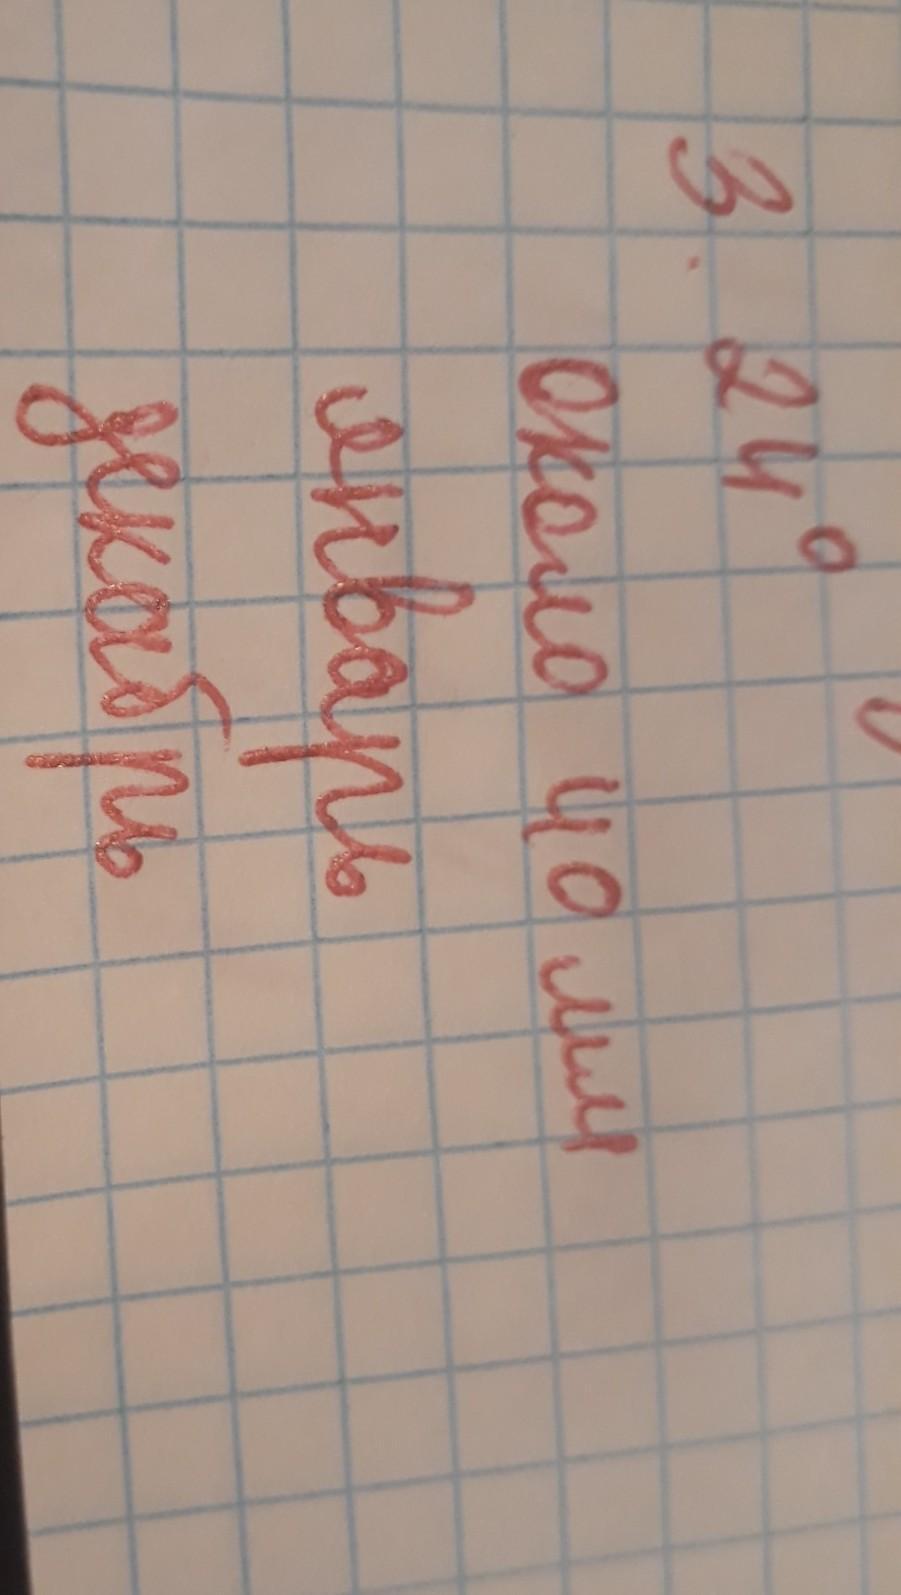 3. 24°
около 40 мм
январь
декабрь